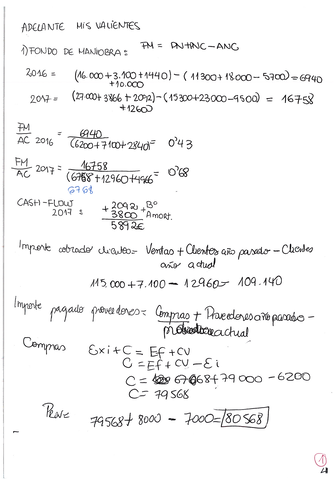 ADELANTE MIS VALIENTES
1) FONDO DE MANIOBRA = FM = PN+PNC - ANC
2016 = (16.000+3.100+1440) - (11300+18000-5700) = 6940
+10.000
2017 = (27000+3866+2092) - (15300+23000-9500) = 16758
+12600
FM / AC 2016 = 6940 / (6200+7100+2840) = 0'43
FM / AC 2017 = 16758 / (6758+12960+4966 = 0'68
6768
CASH-FLOW 2017 = +2092 Bº
3800 Amort.
5892€
Importe cobrado clientes = Ventas + Clientes año pasado - Clientes
año actual
115.000 + 7.100 - 12960 = 109.140
Importe pagado proveedores = Compras + Proveedores año pasado -
actual
Compras Exi + C = Ef + CV
C = Ef + CV - Ei
C = 6768 + 79000 - 6200
C = 79568
79568 + 8000 - 7000 = 80568
1